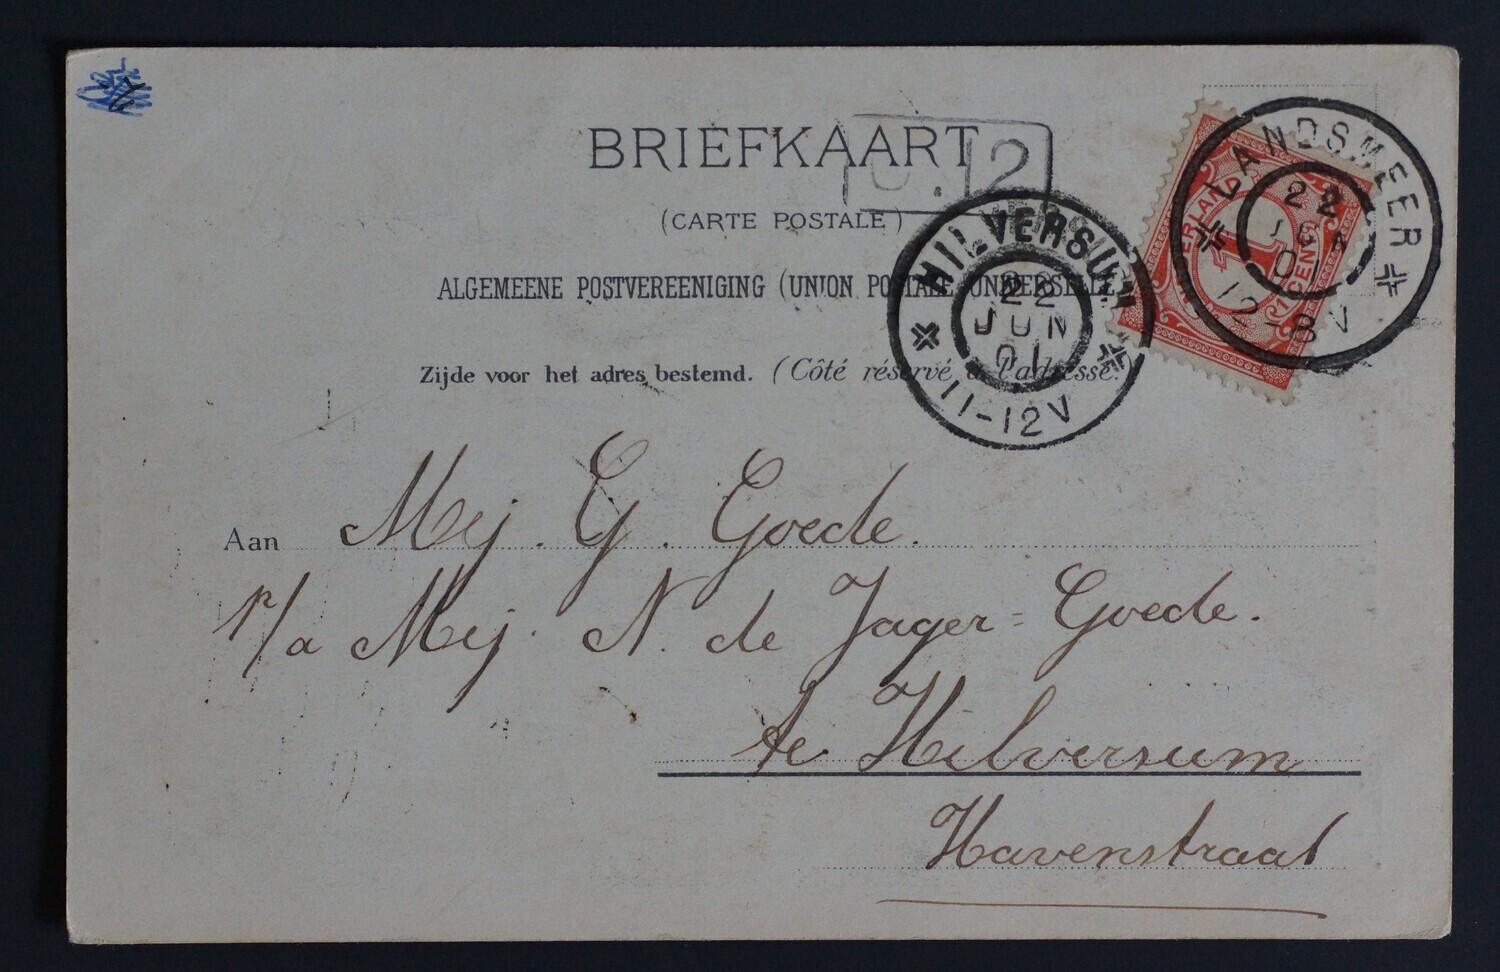 BRIEFKAART
12
(CARTE POSTALE)
ALGEMEENE POSTVEREENIGING (UNION POSTALE UNIVERSELLE)
Zijde voor het adres bestemd. (Côté réservé à l'adresse.)
HILVERSUM
22
JUN
01
11-12V
LANDSMEER
22
JUN
01
12-8V
NEDERLAND
1
1 CENT
Aan Mej. G. Goede.
p/a Mej. N. de Jager=Goede.
te Hilversum
Havenstraat